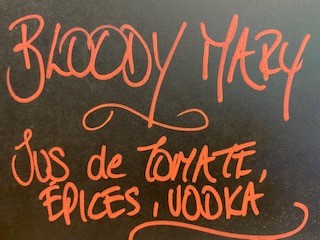 BLOODY MARY
JUS de TOMATE,
ÉPICES, VODKA